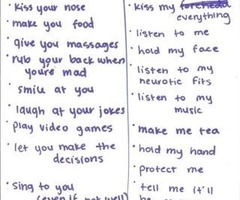 • kiss your nose
• make you food
• give you massages
• rub your back when
you're mad
• smile at you
• laugh at your jokes
• play video games
• let you make the
decisions
• sing to you
(even if not well)
• kiss my forehead
everything
• listen to me
• hold my face
• listen to my
neurotic fits
• listen to my
music
• make me tea
• hold my hand
• protect me
• tell me it'll